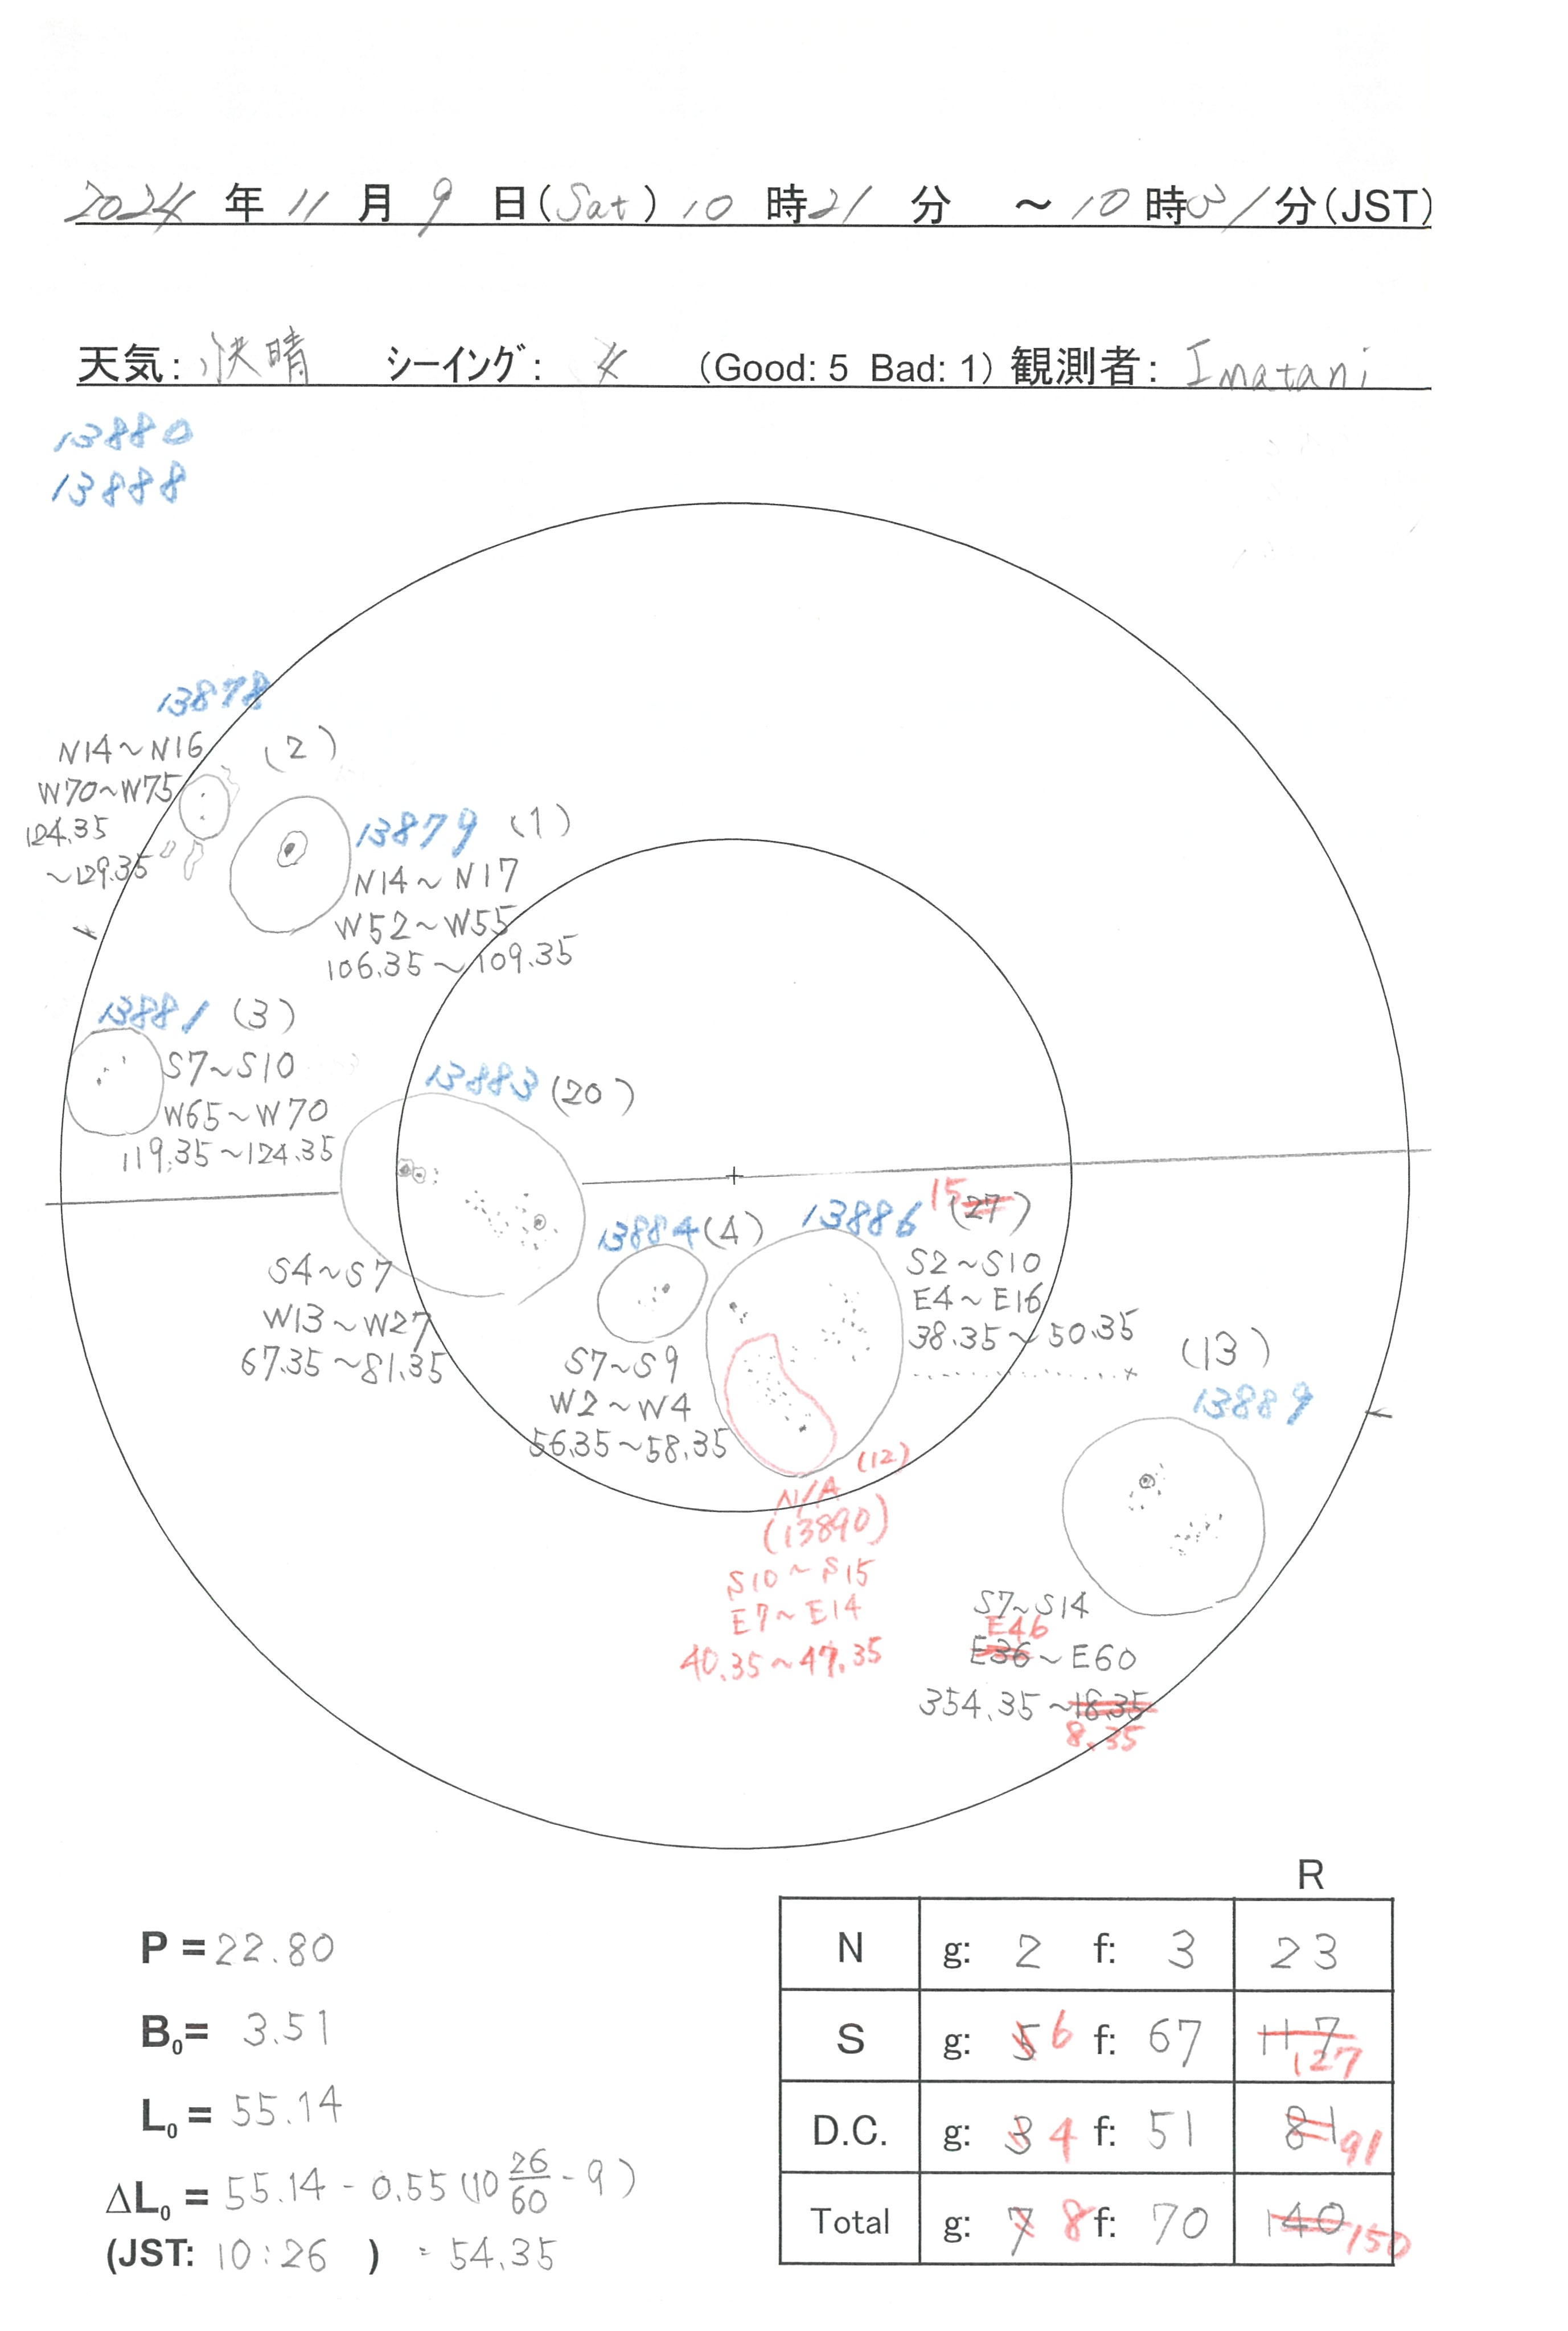 2024 年 11 月 9 日(Sat) 10 時 21 分 ～ 10 時 31 分(JST)
天気: 快晴 シーイング: 4 (Good: 5 Bad: 1) 観測者: Imatani
13880
13888
13878
N14~N16 (2)
W70~W75
124.35
~129.35
13879 (1)
N14~N17
W52~W55
106.35~109.35
13881 (3)
S7~S10
W65~W70
119.35~124.35
13883 (20)
S4~S7
W13~W27
67.35~81.35
13884 (4)
S7~S9
W2~W4
56.35~58.35
13886 15 (27)
S2~S10
E4~E16
38.35~50.35
(12)
N/A
(13890)
S10~S15
E7~E14
40.35~47.35
(13)
13889
S7~S14
E46
E36~E60
354.35~18.35
8.35
P = 22.80
B₀= 3.51
L₀ = 55.14
ΔL₀ = 55.14 - 0.55 (10 26/60 - 9)
(JST: 10:26 ) = 54.35
R
N g: 2 f: 3 23
S g: 5 6 f: 67 117 127
D.C. g: 3 4 f: 51 81 91
Total g: 7 8 f: 70 140 150